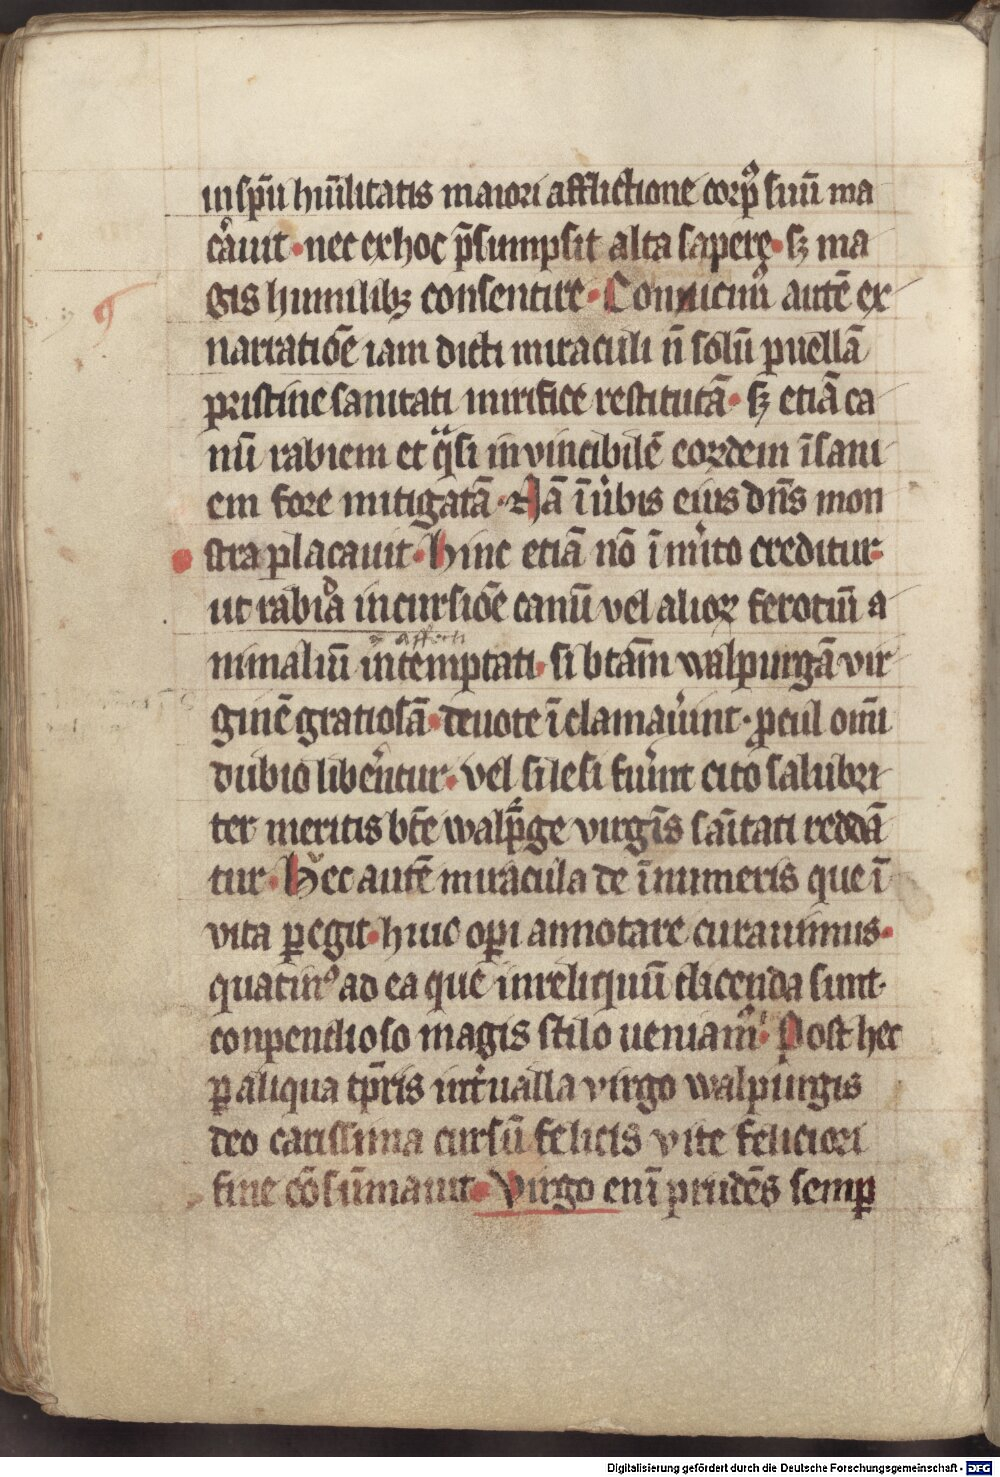 in sp̄u hūīlitatis maiori afflictione corpꝰ suū ma
cͣauit · nec ex hoc p̄sumpsit alta sapere · sꝫ ma
gis humilibꝫ consentire · Conuicimꝰ autē ex
narratiōe iam dicti miraculi n̄ solū puellā
pristine sanitati mirifice restitutā · sꝫ etiā ca
nū rabiem et qͣsi in vincibilē eordem īsani
em fore mitigatā · Nā ī u̾bis eius dn̄s mon
stra placauit · Hinc etiā nō īm̾ito creditur ·
ut rabida incursiōe canū vel alioꝝ ferociū a
affecti
nimaliū intemptati · si btām walpurgā vir
ginē gratiosā · deuote īclamau̾int · ꝓcul omī
dubio libe̾ntur · vel si lesi fu̾int cito salubri
ter meritis btē walpͣge virgīs sāitati reddā
tur · Hec autē miracula de īnumeris que ī
vita ꝑegit · huic oꝑi annotare curauimus ·
quatinꝰ ad ea que in reliquū dicenda sunt ·
conpendioso magis stilo ueniamꝰ · Post hec
ꝑ aliqua tp̄ris int̾ualla virgo walpurgis
deo carissima cursū felicis vite feliciori
fine cōsūmauit · Virgo enī prudēs semꝑ
Digitalisierung gefördert durch die Deutsche Forschungsgemeinschaft - DFG